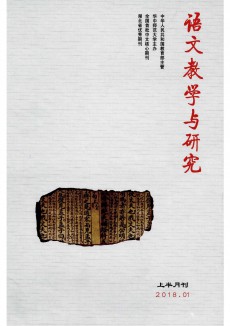 语文教学与研究
中华人民共和国教育部主管
华中师范大学主办
全国首批中文核心期刊
湖北省优秀期刊
上半月刊
2018.01